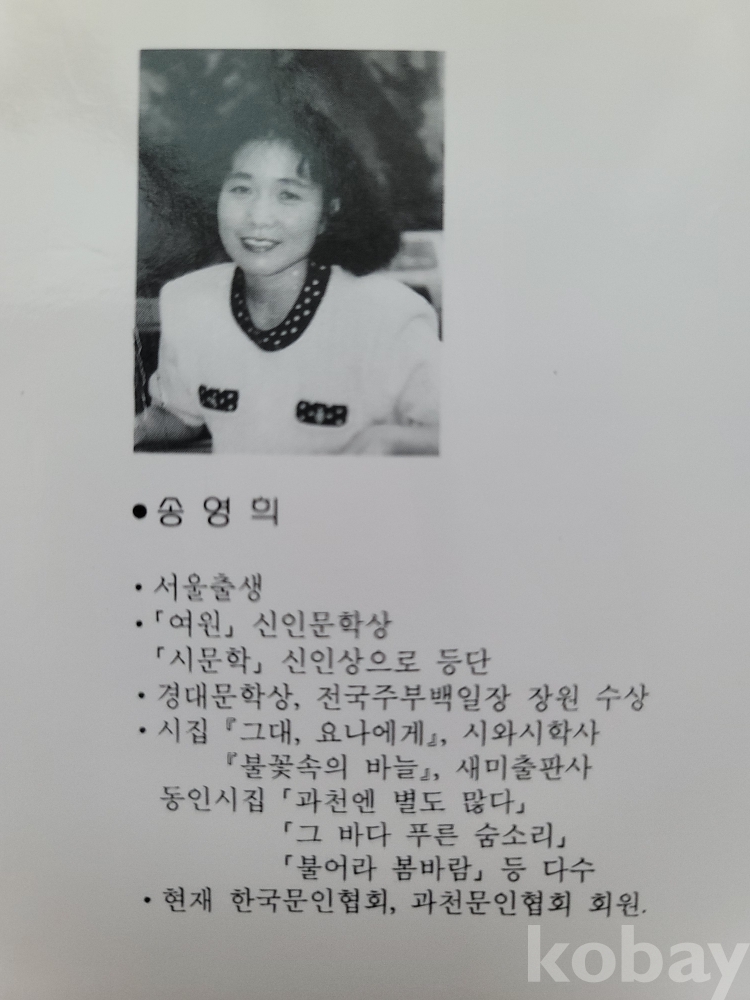 • 송영희
• 서울출생
• 「여원」 신인문학상
「시문학」 신인상으로 등단
• 경대문학상, 전국주부백일장 장원 수상
• 시집 『그대, 요나에게』, 시와시학사
『불꽃속의 바늘』, 새미출판사
동인시집 「과천엔 별도 많다」
「그 바다 푸른 숨소리」
「불어라 봄바람」 등 다수
• 현재 한국문인협회, 과천문인협회 회원.
kobay